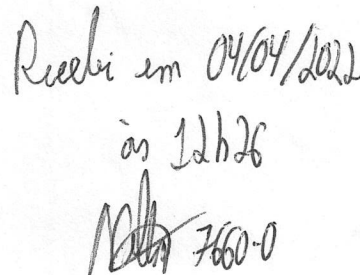 Recebi em 04/04/2022
às 12h26
7660-0